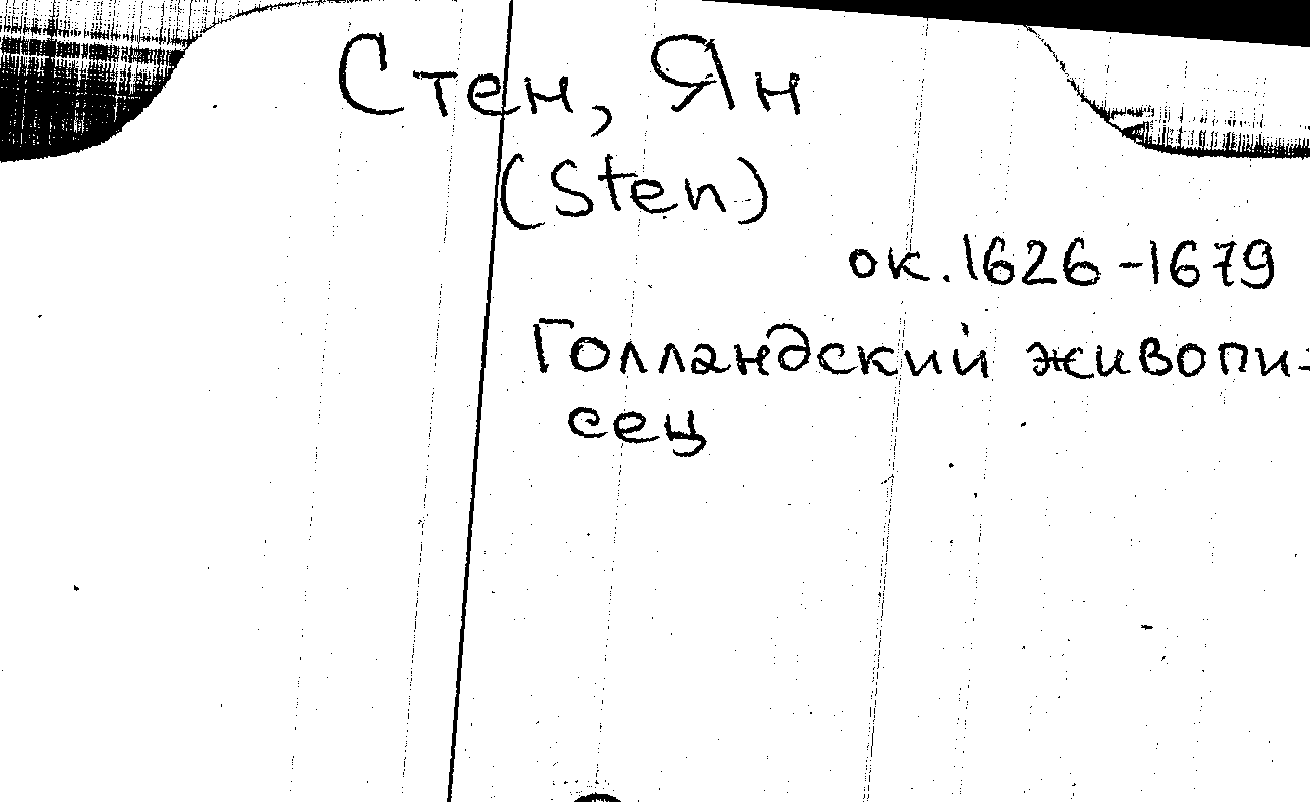 Стен, Ян
(Sten)
ок. 1626-1679
Голландский живопи-
сец